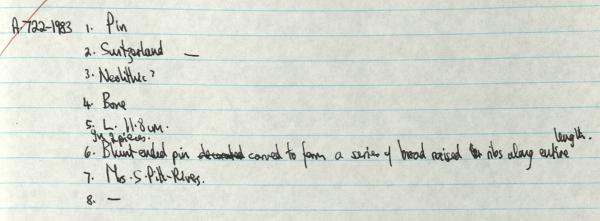 A 722-1983 1. Pin
2. Switzerland —
3. Neolithic?
4. Bone
5. L. 11.8 cm.
In 2 pieces.
6. Blunt ended pin decorated carved to form a series of broad raised ribs along entire length.
7. Mrs. S. Pitt-Rivers.
8. —